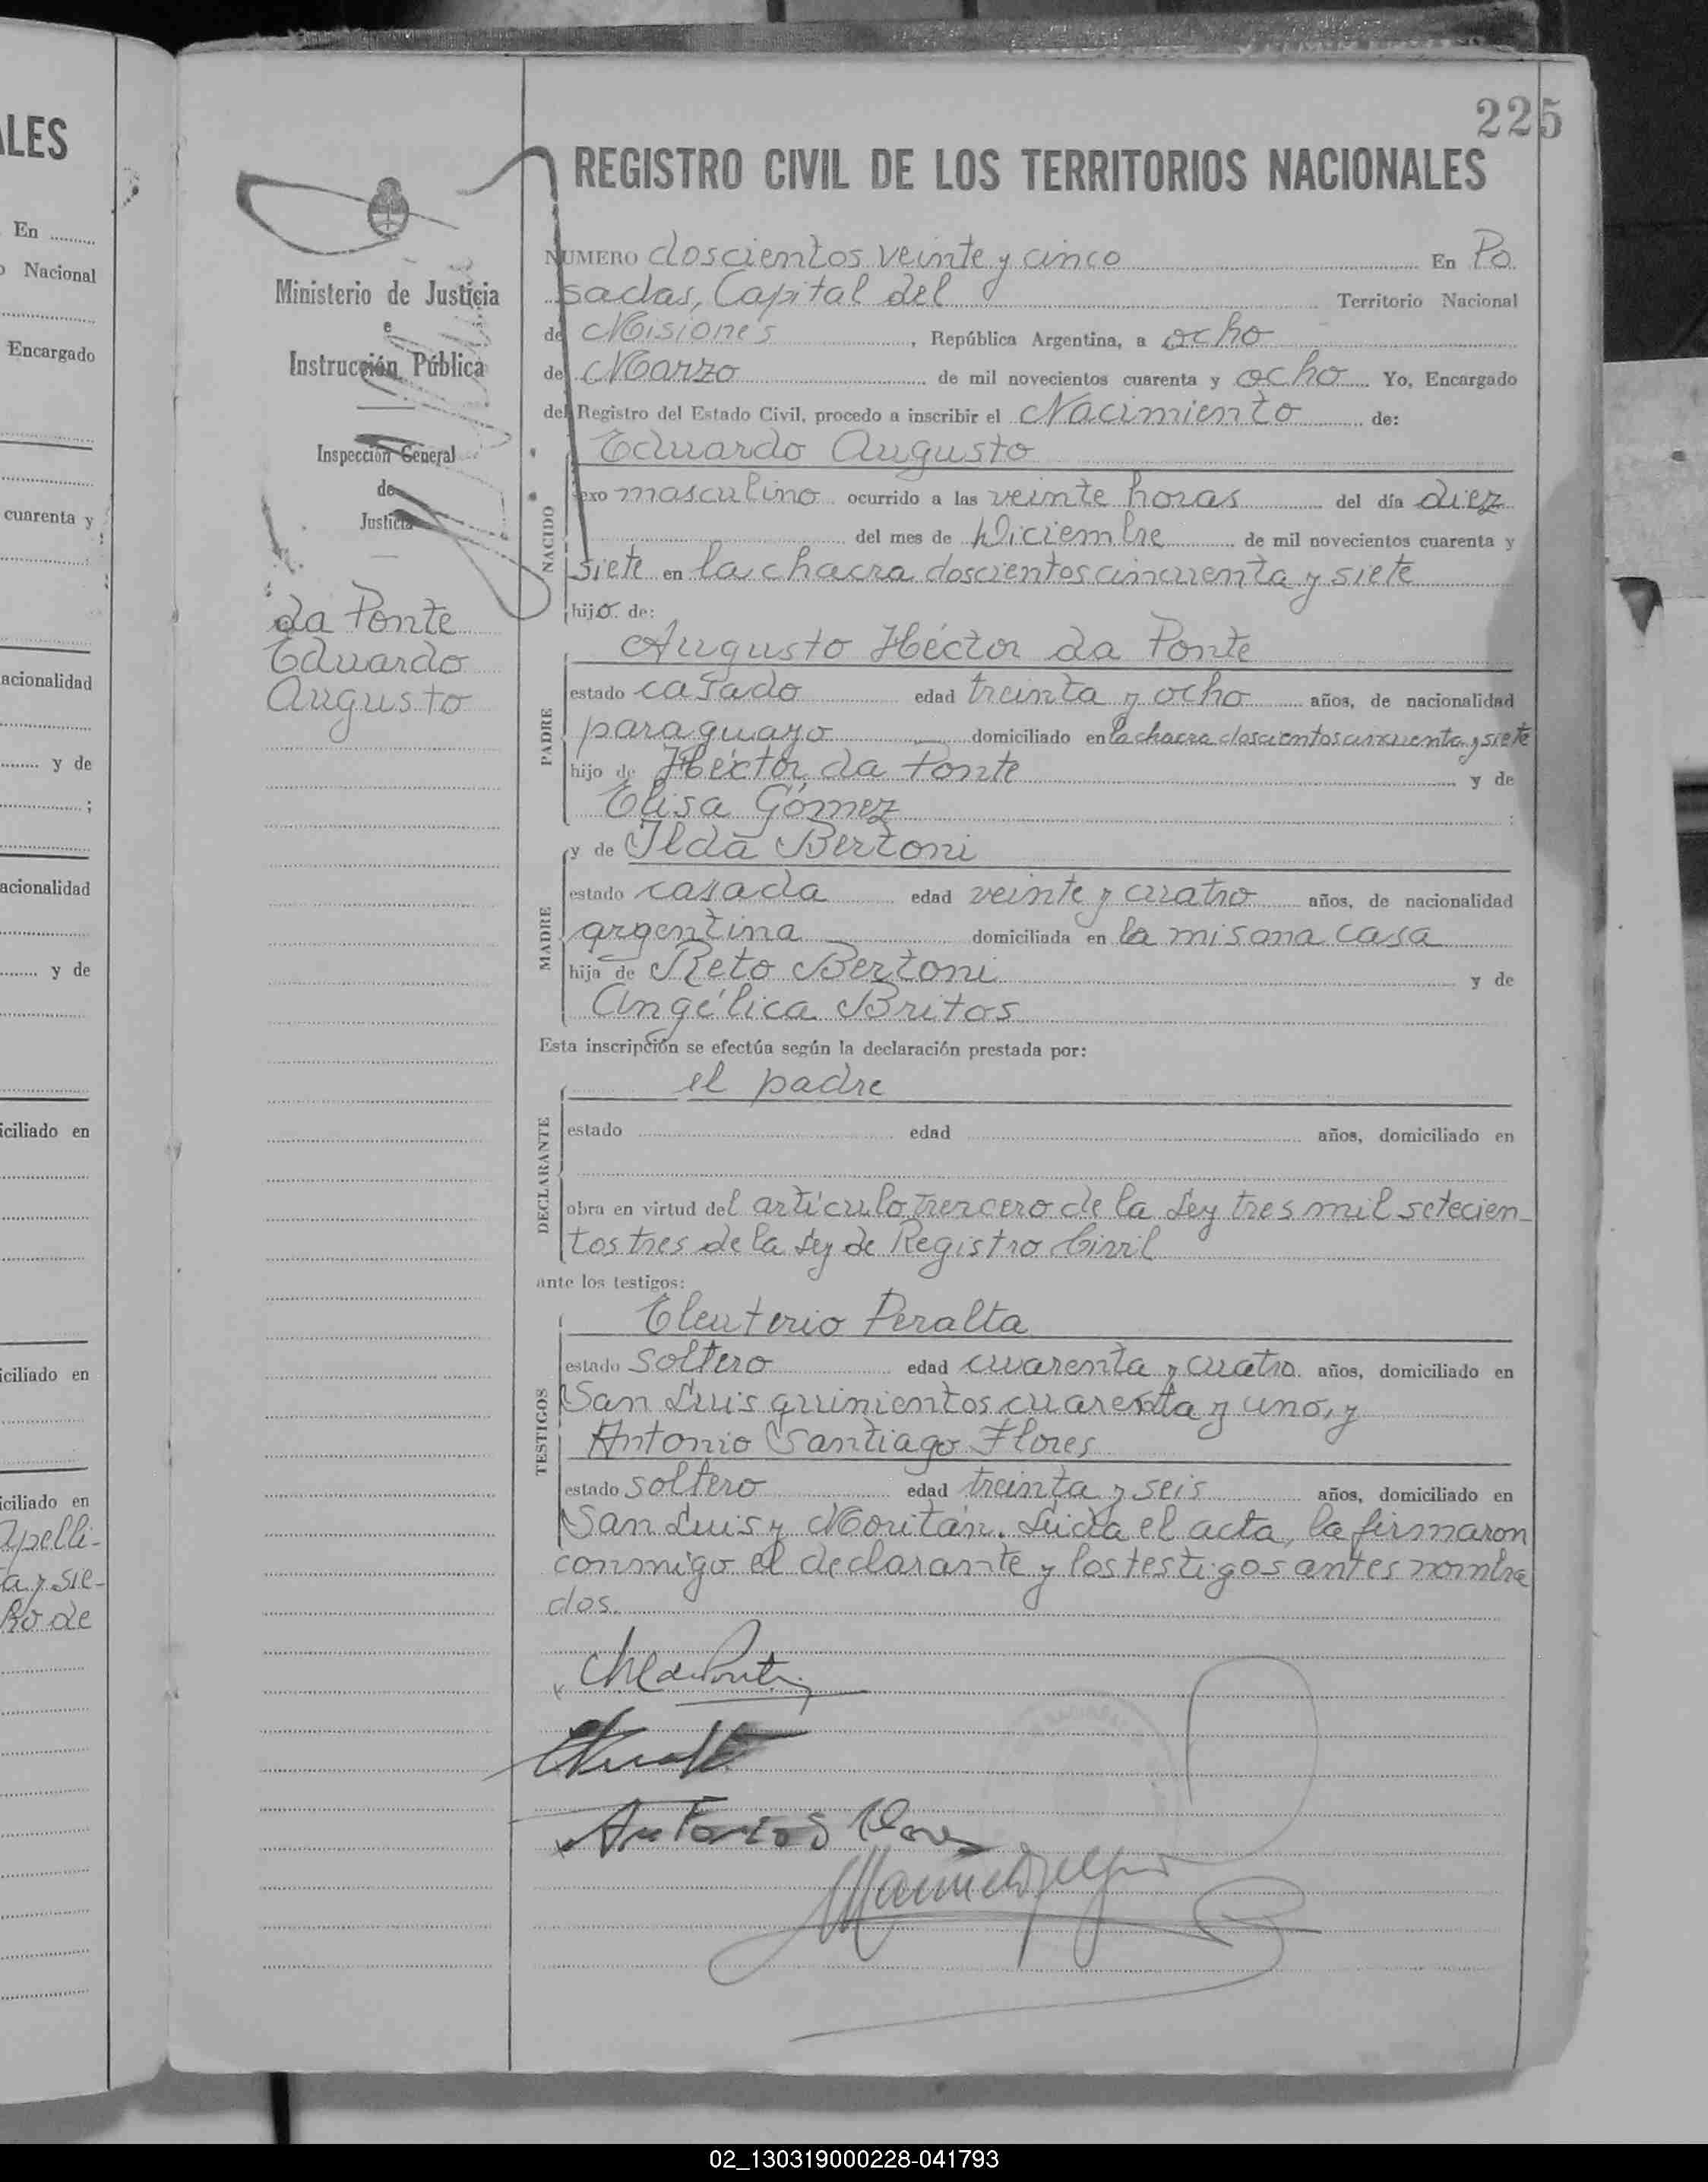 ALES
En
Nacional
Encargado
cuarenta y
acionalidad
y de
;
acionalidad
y de
iciliado en
iciliado en
iciliado en
apelli-
a y sie-
ho de
225
REGISTRO CIVIL DE LOS TERRITORIOS NACIONALES
Ministerio de Justicia
e
Instrucción Pública
Inspección General
de
Justicia
da Ponte
Eduardo
Augusto
NUMERO doscientos veinte y cinco En Po
sadas, Capital del Territorio Nacional
de Misiones, República Argentina, a ocho
de Marzo de mil novecientos cuarenta y ocho Yo, Encargado
del Registro del Estado Civil, procedo a inscribir el Nacimiento de:
NACIDO
Eduardo Augusto
sexo masculino ocurrido a las veinte horas del día diez
del mes de Diciembre de mil novecientos cuarenta y
siete en la chacra doscientos cincuenta y siete
hijo de:
PADRE
Augusto Héctor da Ponte
estado casado edad treinta y ocho años, de nacionalidad
paraguayo domiciliado en la chacra doscientos cincuenta y siete
hijo de Héctor da Ponte y de
Elisa Gómez ;
MADRE
y de Ilda Bertoni
estado casada edad veinte y cuatro años, de nacionalidad
argentina domiciliada en la misma casa
hija de Reto Bertoni y de
Angélica Britos
Esta inscripción se efectúa según la declaración prestada por:
DECLARANTE
el padre
estado edad años, domiciliado en
obra en virtud del artículo trercero de la Ley tres mil setecien-
tos tres de la Ley de Registro Civil
ante los testigos:
TESTIGOS
Eleuterio Peralta
estado soltero edad cuarenta y cuatro años, domiciliado en
San Luis quinientos cuarenta y uno, y
Antonio Santiago Flores
estado soltero edad treinta y seis años, domiciliado en
San Luis y Moritán. Leida el acta, la firmaron
conmigo el declarante y los testigos antes nombra
dos.
Antonio S Flores
02_130319000228-041793